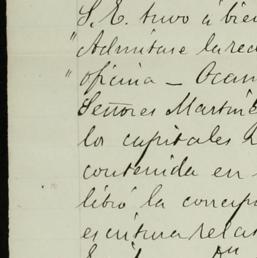 S. E. tuvo á bien
"Admitase la re
" oficina — Ocam
Señores Martin
los capitales
contenida en
libró la concep
escritura relas